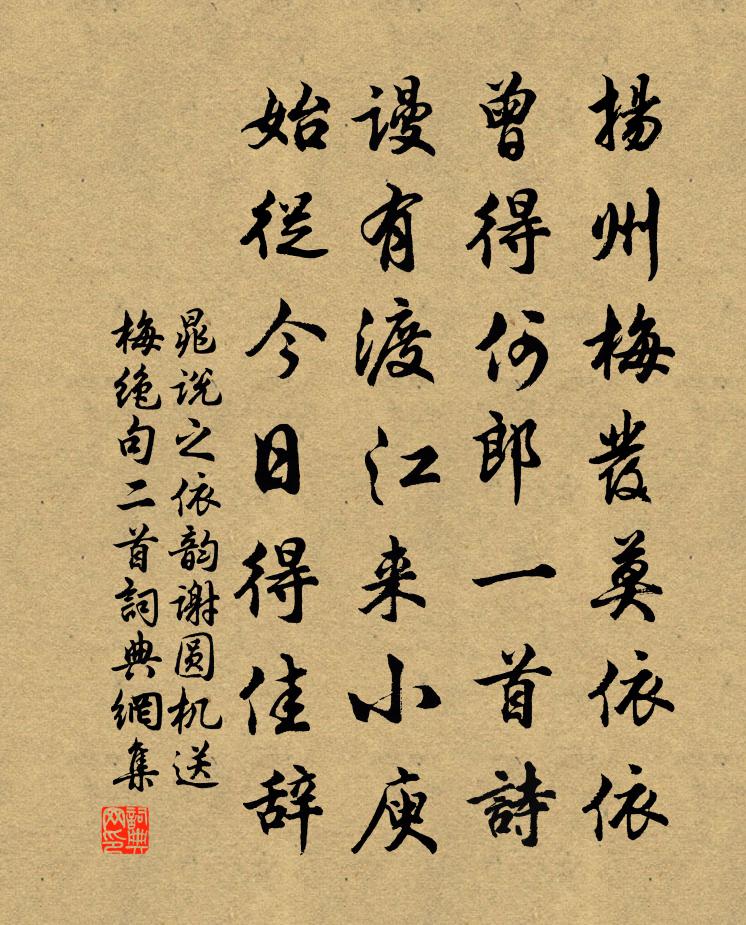 揚州梅發莫依依
曾得何郎一首詩
謾有渡江来小庾
始從今日得佳辞
晁说之依韵谢圆机送
梅绝句二首詞典網集
詞典
网印